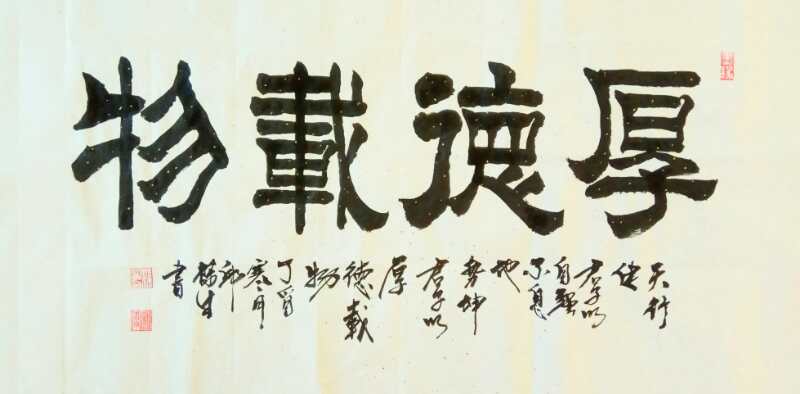 厚德載物
天行
健
君子以
自强
不息
地
势坤
君子以
厚
德載
物
丁酉
寒月
書